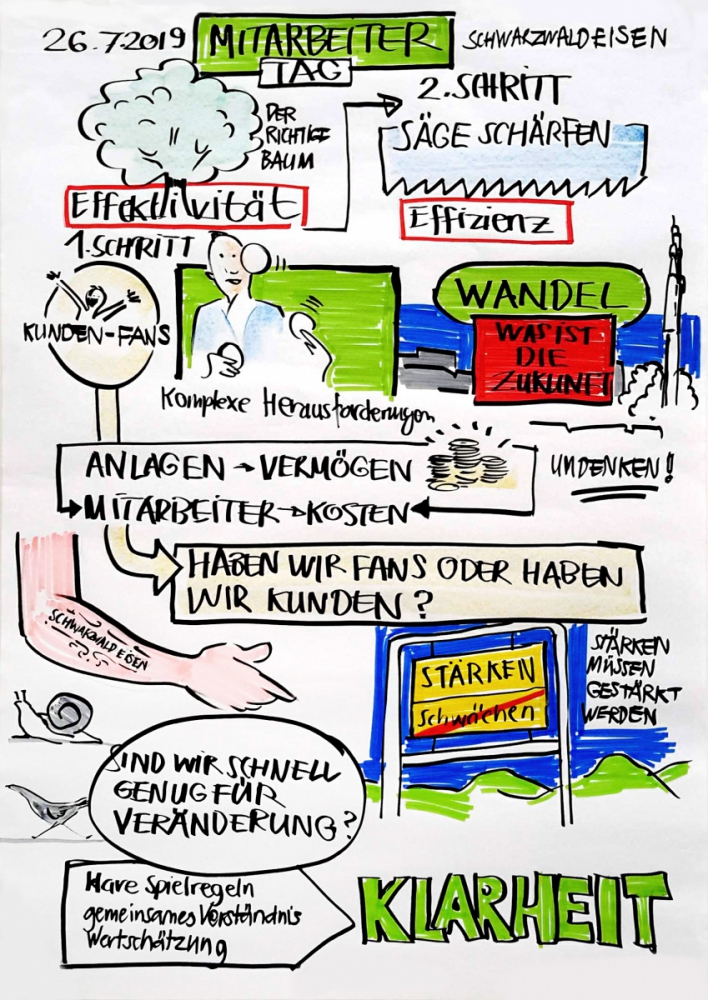 26.7.2019
MITARBEITER
TAG
SCHWARZWALDEISEN
DER
RICHTIGE
BAUM
Effektivität
1. SCHRITT
2. SCHRITT
SÄGE SCHÄRFEN
Effizienz
KUNDEN-FANS
Komplexe Herausforderungen
WANDEL
WAS IST
DIE
ZUKUNFT
ANLAGEN → VERMÖGEN
MITARBEITER → KOSTEN
UMDENKEN!
HABEN WIR FANS ODER HABEN
WIR KUNDEN?
SCHWARZWALDEISEN
STÄRKEN
Schwächen
STÄRKEN
MÜSSEN
GESTÄRKT
WERDEN
SIND WIR SCHNELL
GENUG FÜR
VERÄNDERUNG?
klare Spielregeln
gemeinsames Verständnis
Wertschätzung
KLARHEIT